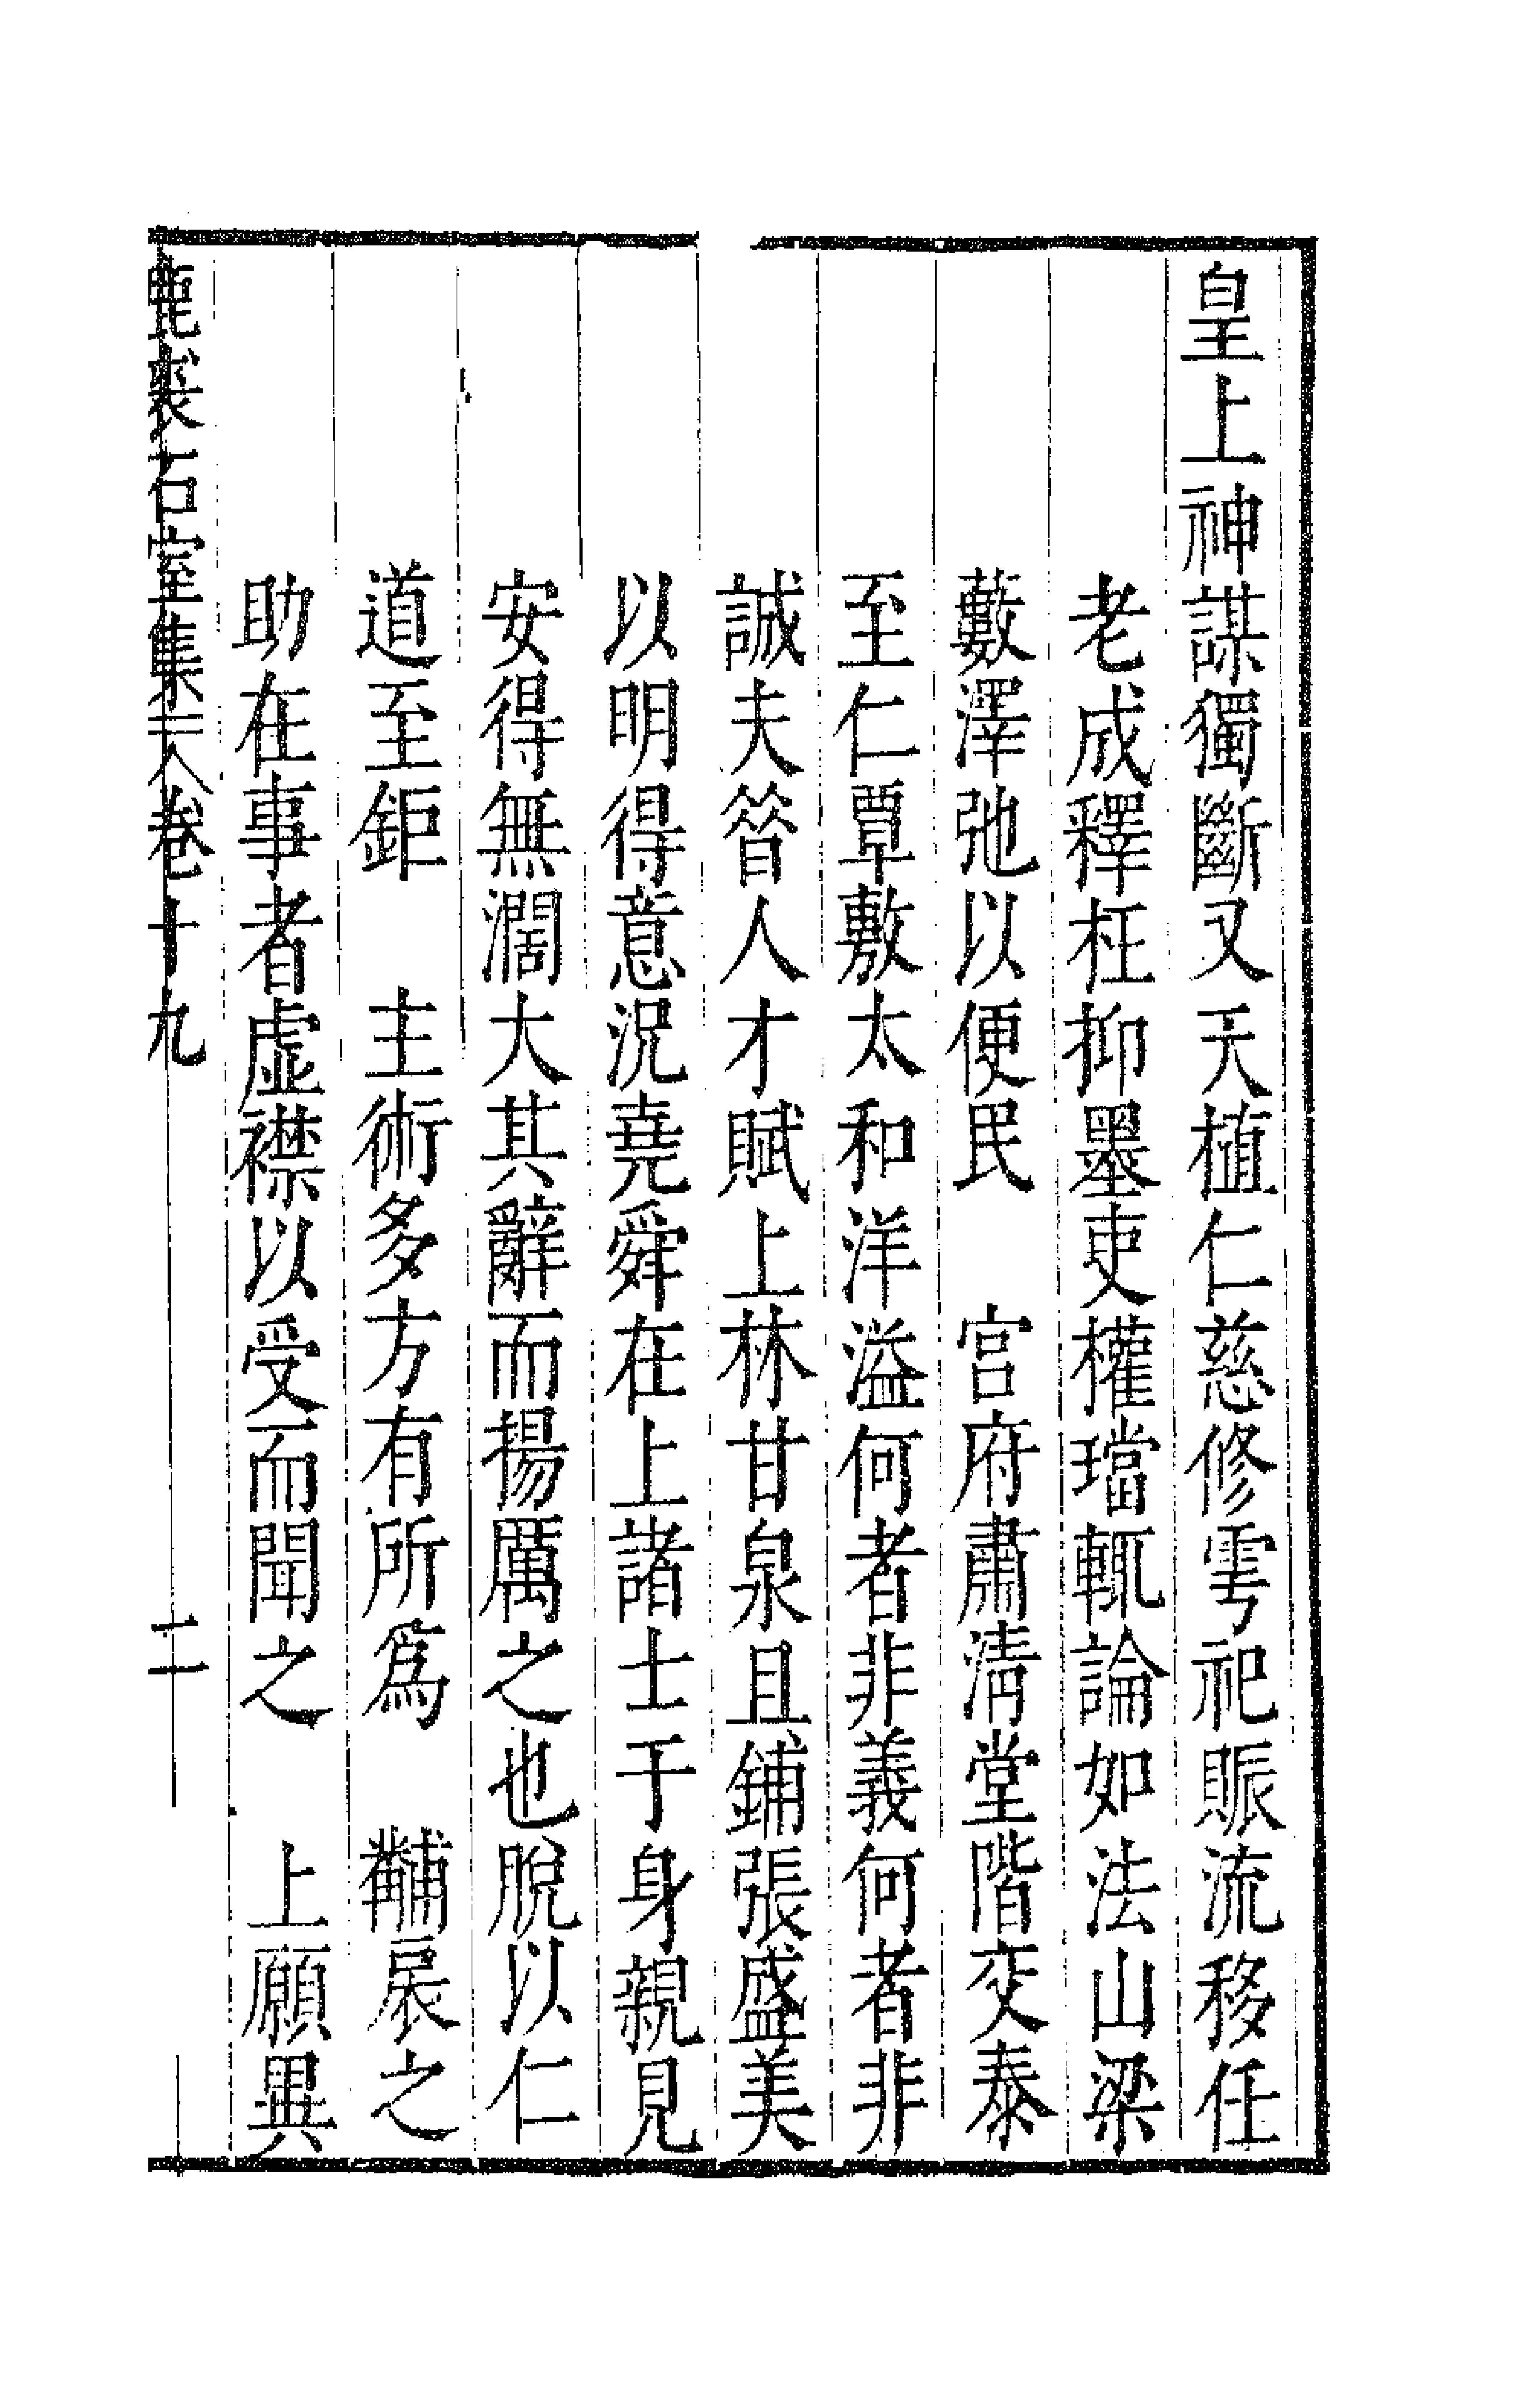 皇上神謀獨斷又天植仁慈修雩祀賑流移任
老成釋枉抑墨吏權璫輒論如法山梁
藪澤弛以便民　宮府肅清堂階交泰
至仁覃敷太和洋溢何者非義何者非
誠夫晉人才賦上林甘泉且鋪張盛美
以明得意況堯舜在上諸士于身親見
安得無濶大其辭而揚厲之也脫以仁
道至鉅　主術多方有所爲　黼扆之
助在事者虛襟以受而聞之　上願異
鹿裘石室集文卷十九　二